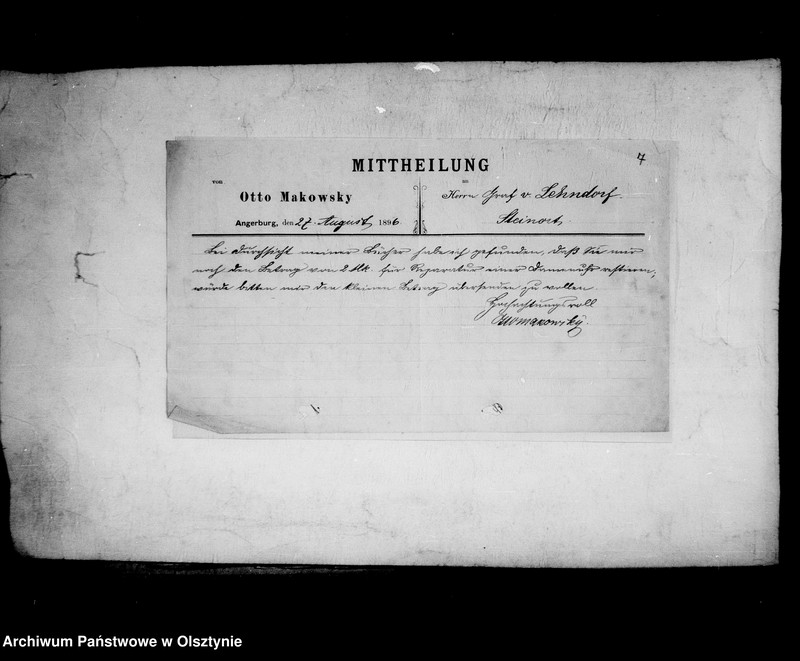 7
MITTHEILUNG
von an
Otto Makowsky Herrn Graf v. Lehndorf.
Angerburg, den 27. August 1896. Steinort.
Bei Durchsicht meiner Bücher habe ich gefunden, daß Sie mir
noch den Betrag von 2 Mk. für Reparatur einer Damenuhr restiren,
würde bitten mir den kleinen Betrag übersenden zu wollen.
Hochachtungsvoll
Otto Makowsky.
Archiwum Państwowe w Olsztynie